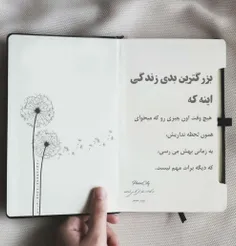 بزرگترین بدی زندگی
اینه که
هیچ وقت اون چیزی رو که میخوای
همون لحظه نداریش،
یه زمانی بهش می رسی،
که دیگه برات مهم نیست.